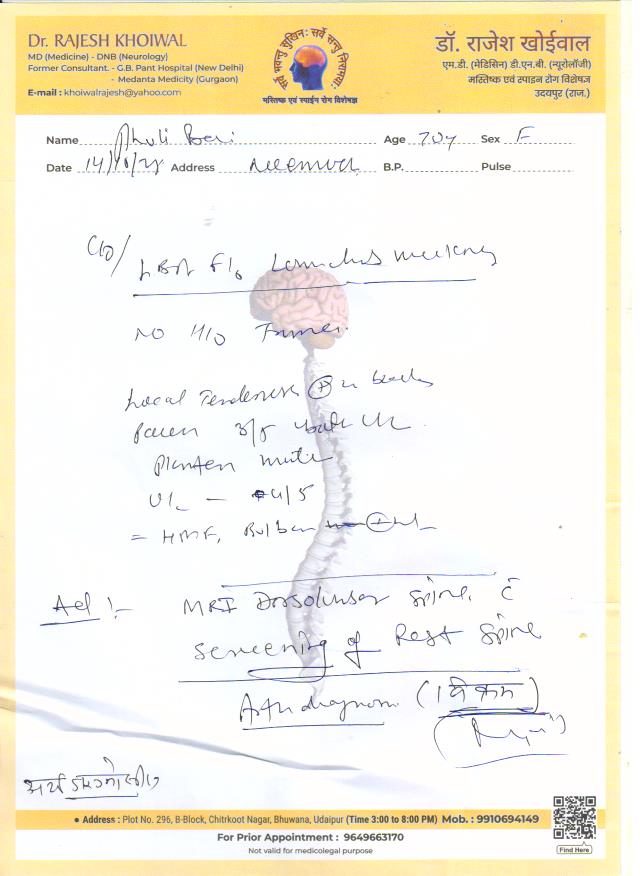 Dr. RAJESH KHOIWAL
MD (Medicine) - DNB (Neurology)
Former Consultant. - G.B. Pant Hospital (New Delhi)
- Medanta Medicity (Gurgaon)
E-mail : khoiwalrajesh@yahoo.com
सर्वे भवन्तु सुखिनः सर्वे सन्तु निरामयाः
मस्तिष्क एवं स्पाईन रोग विशेषज्ञ
डॉ. राजेश खोईवाल
एम.डी. (मेडिसिन) डी.एन.बी. (न्यूरोलॉजी)
मस्तिष्क एवं स्पाइन रोग विशेषज्ञ
उदयपुर (राज.)
Name Age 70y Sex F
Date 14/10/24 Address Neemuch B.P. Pulse
C/o/ LBA F/b
NO H/O
Local Tenderness + in back
Power 3/5 both LL
Planter mute
U/L - 4/5
= HMF, Bulbar
Ad :- MRI Dorsolumbar Spine c
Screening of Rest Spine
Arth diagnosis
अर्थ डायग्नोसिस
• Address : Plot No. 296, B-Block, Chitrkoot Nagar, Bhuwana, Udaipur (Time 3:00 to 8:00 PM) Mob. : 9910694149
For Prior Appointment : 9649663170
Not valid for medicolegal purpose
Find Here